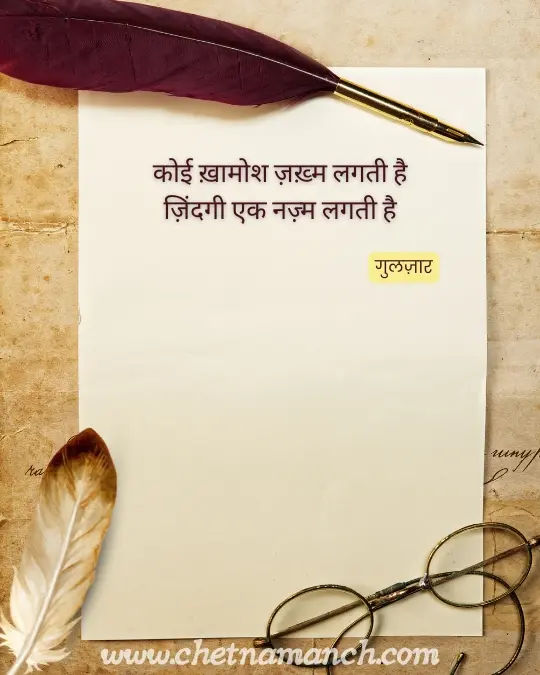 कोई ख़ामोश ज़ख़्म लगती है
ज़िंदगी एक नज़्म लगती है
गुलज़ार
www.chetnamanch.com